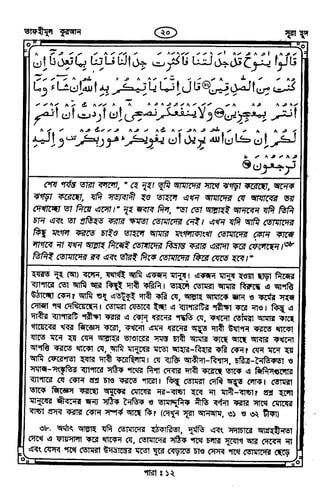 তাফহীমুল কুরআন
২০
সূরা হূদ
قَالُوا يٰنُوحُ قَدْ جٰدَلْتَنَا فَاَكْثَرْتَ جِدَالَنَا فَاْتِنَا بِمَا تَعِدُنَآ اِنْ
كُنْتَ مِنَ الصّٰدِقِيْنَ ﴿٣٢﴾ قَالَ اِنَّمَا يَاْتِيْكُمْ بِهِ اللّٰهُ اِنْ شَآءَ وَمَآ
اَنْتُمْ بِمُعْجِزِيْنَ ﴿٣٣﴾ وَلَا يَنْفَعُكُمْ نُصْحِيْٓ اِنْ اَرَدْتُّ اَنْ اَنْصَحَ
لَكُمْ اِنْ كَانَ اللّٰهُ يُرِيْدُ اَنْ يُّغْوِيَكُمْ ۚ هُوَ رَبُّكُمْ ۟ وَاِلَيْهِ
تُرْجَعُوْنَ ﴿٣٤﴾
শেষ পর্যন্ত তারা বললো, " হে নূহ! তুমি আমাদের সাথে ঝগড়া করেছো, অনেক
ঝগড়া করেছো, যদি সত্যবাদী হও তাহলে এখন আমাদের যে আযাবের ভয়
দেখাচ্ছো তা নিয়ে এসো।" নূহ জবাব দিল, "তা তো আল্লাহই আনবেন যদি তিনি
চান এবং তা প্রতিহত করার ক্ষমতা তোমাদের নেই। এখন যদি আমি তোমাদের
কিছু মংগল করতে চাইও তাহলে আমার মংগলাকাংখা তোমাদের কোন কাজে
লাগবে না যখন আল্লাহ নিজেই তোমাদের বিভ্রান্ত করার এরাদা করে ফেলেছেন।৩৮
তিনিই তোমাদের রব এবং তাঁরই দিকে তোমাদের ফিরে যেতে হবে।"
হযরত নূহ (আ) বলেন, যথার্থই আমি একজন মানুষ। একজন মানুষ হওয়া ছাড়া নিজের
ব্যাপারে তো আমি আর কিছুই দাবী করিনি। তাহলে তোমরা আমার বিরুদ্ধে এ আপত্তি
উঠাচ্ছো কেন? আমি শুধু এতটুকুই দাবী করি যে, আল্লাহ আমাকে জ্ঞান ও কর্মের সহজ
সোজা পথ দেখিয়েছেন। তোমরা যেভাবে ইচ্ছা এ ব্যাপারটির পরীক্ষা করে নাও। কিন্তু এ
দাবীর ব্যাপারটি পরীক্ষা করার এ কোন্ ধরনের পদ্ধতি যে, কখনো তোমরা আমার কাছে
গায়েবের খবর জিজ্ঞেস করো, কখনো এমন ধরনের অদ্ভূত দাবী উত্থাপন করতে থাকো
যাতে মনে হয় যেন আল্লাহর ভাণ্ডারের সমস্ত চাবী আমার কাছে আছে আবার কখনো
আপত্তি করতে থাকো যে, আমি মানুষের মতো আহার-বিহার করি কেন? যেন মনে হয়
আমি ফেরেশতা হবার দাবী করেছিলাম। যে ব্যক্তি আকীদা-বিশ্বাস, চরিত্র-নৈতিকতা ও
সমাজ-সংস্কৃতির ব্যাপারে সঠিক পথের দিশা দেবার দাবী করেছে তাকে এ জিনিসগুলোর
ব্যাপারে যে কোন প্রশ্ন চাও করতে পারো। কিন্তু তোমরা দেখি অদ্ভূত লোক। তোমরা
তাকে জিজ্ঞেস করছো অমুকের মোষের নর-বাচ্চা হবে না মাদী-বাচ্চা? প্রশ্ন হলো
মানুষের জীবনের জন্য সঠিক নৈতিক ও তামাদ্দুনিক নীতি বর্ণনা করার সাথে মোষের
বাচ্চা প্রসব করার কোন সম্পর্ক আছে কি? (দেখুন সূরা আনআম, ৩১ ও ৩২ টীকা)
৩৮. অর্থাৎ আল্লাহ যদি তোমাদের হঠকারিতা, দুর্মতি এবং সদাচারে আগ্রহহীনতা
দেখে এ ফায়সালা করে থাকেন যে, তোমাদের সঠিক পথে চলার সুযোগ আর দেবেন না
এবং যেসব পথে তোমরা উদভ্রান্তের মতো ঘুরে বেড়াতে চাও সেসব পথে তোমাদের ছেড়ে
পারা : ১২